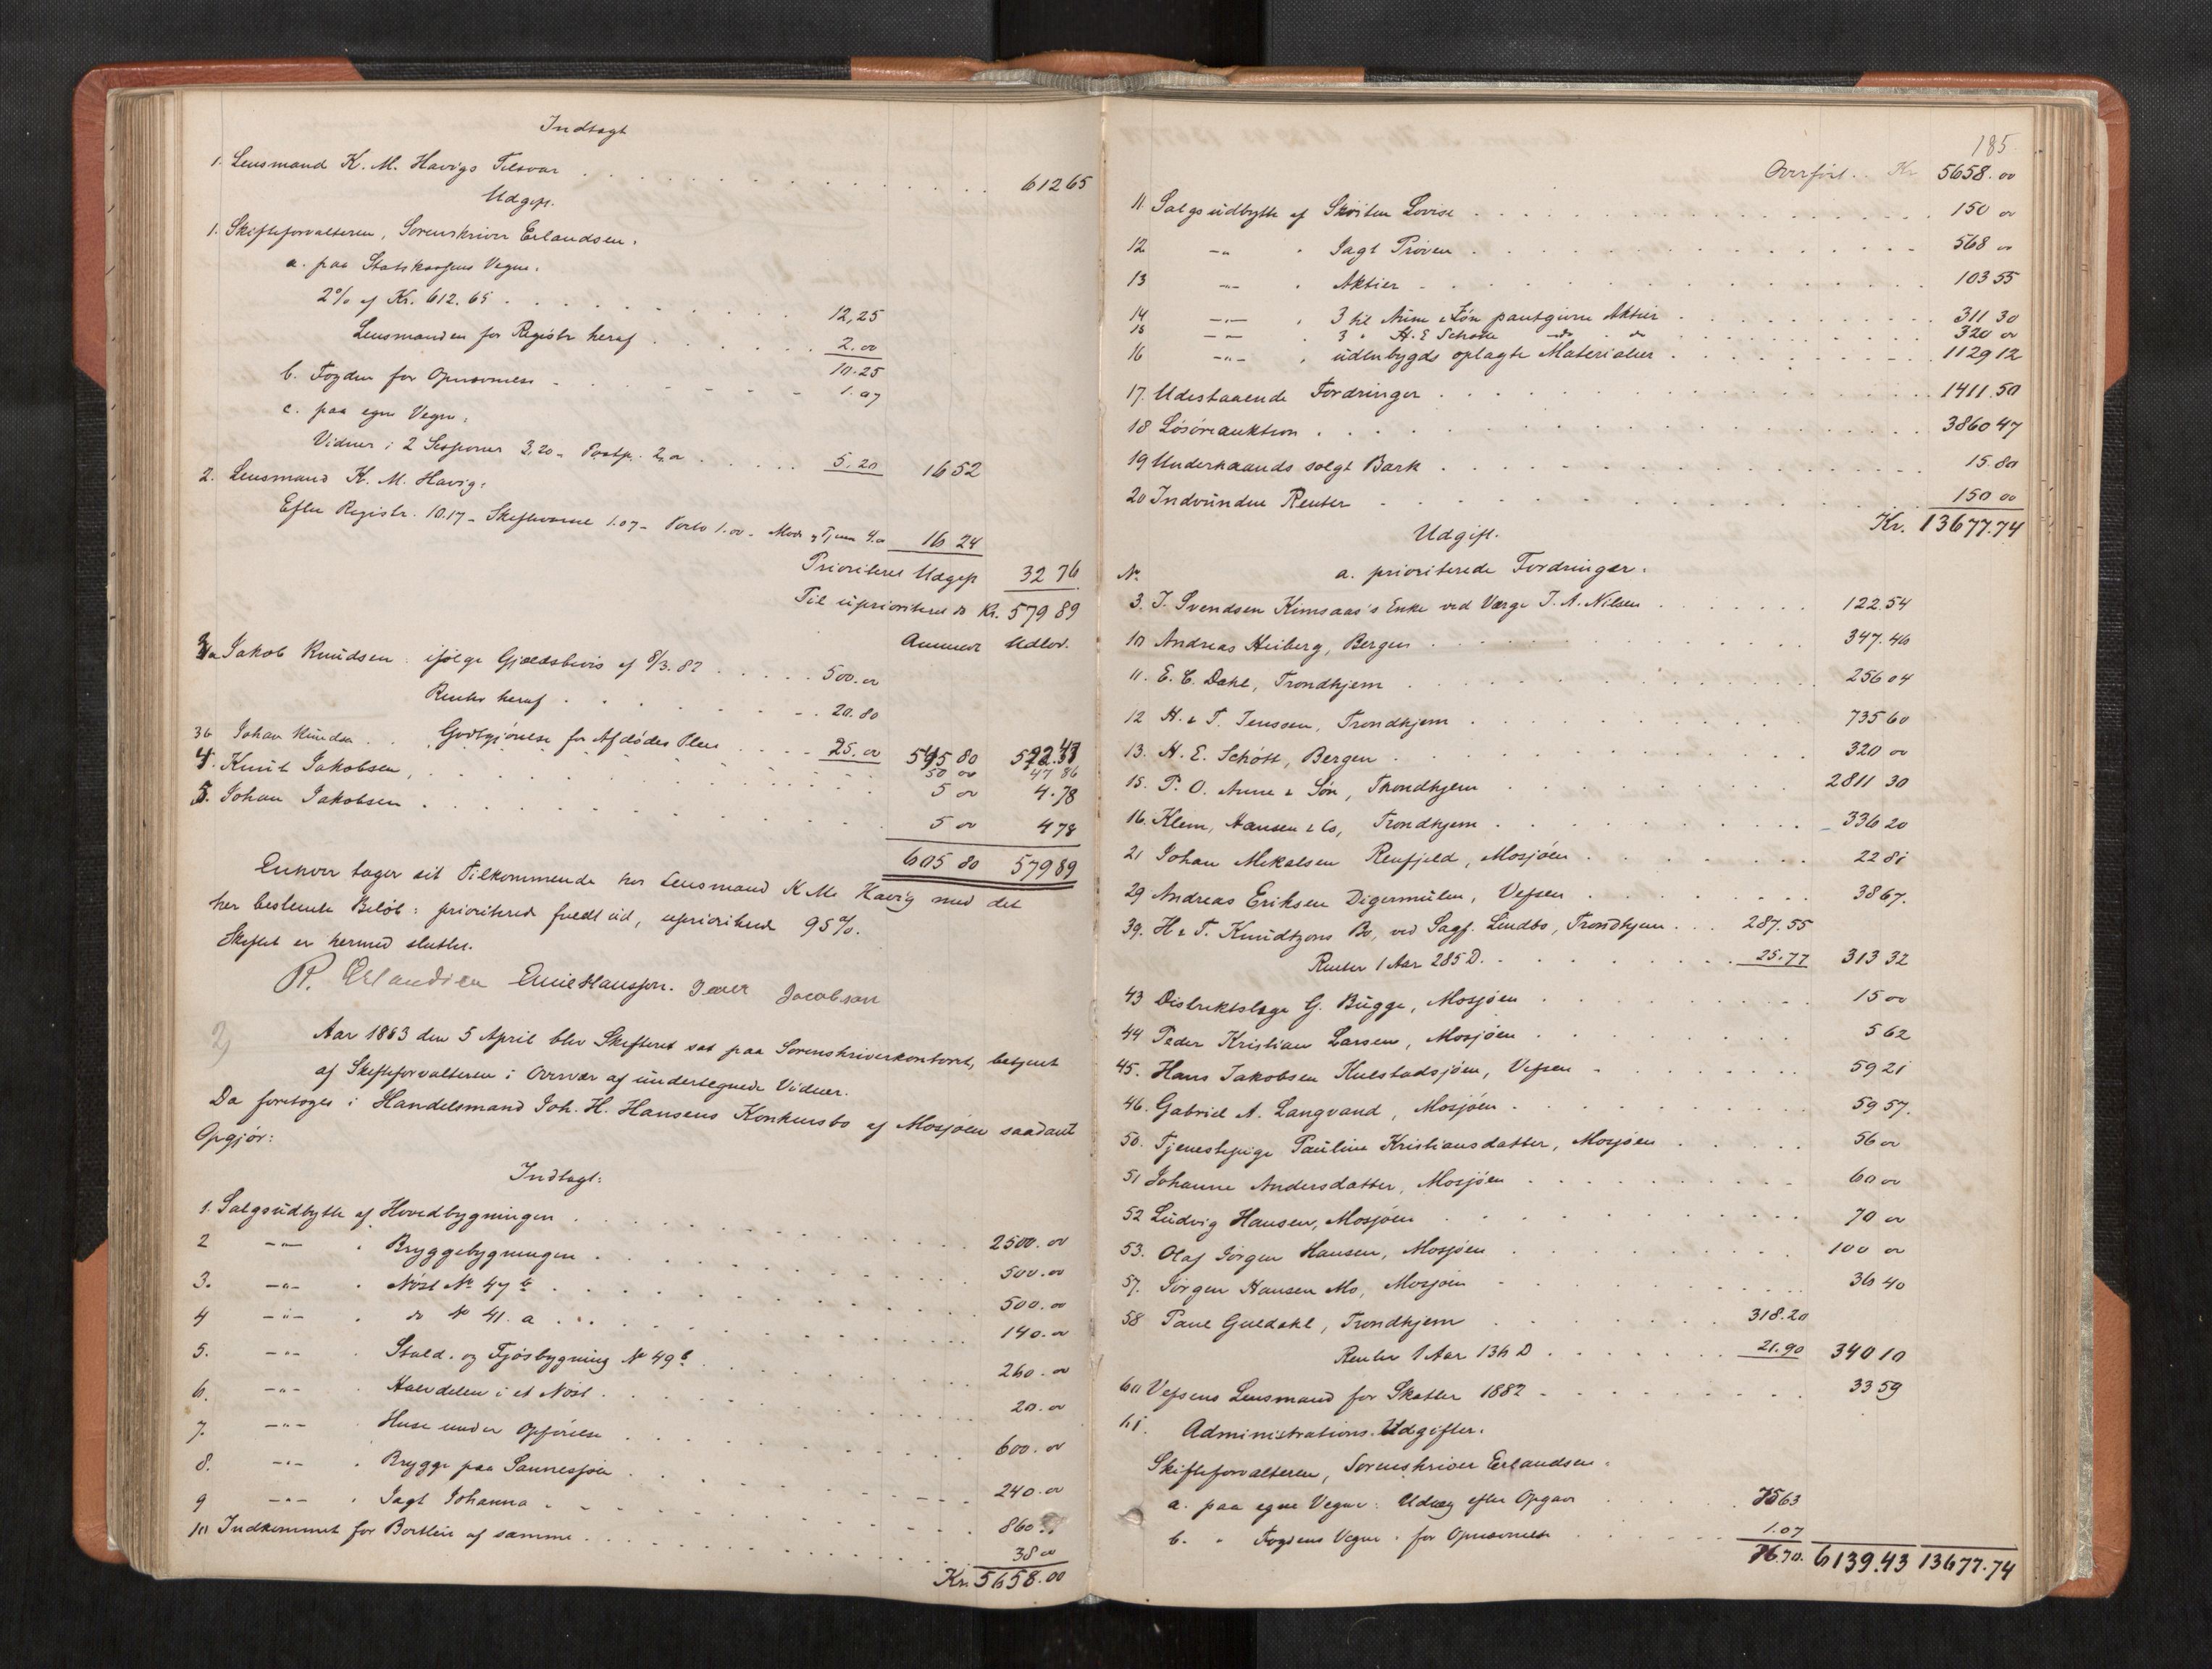 Indtægt
1. Lensmand K. M. Havigs Tilsvar 612 65
Udgift.
1. Skifteforvalteren, Sorenskriver Erlandsen:
a. paa Statskassens Vegne:
2% af Kr. 612.65 12,25
Lensmanden for Registr heraf 2.00
10.25
b. Fogden for Opnævnelse 1.07
c. paa egne Vegne:
Vidner i 2 Sessioner 3,20 - Postp. 2,00 5.20 16 52
2. Lensmand K. M. Havig:
Efter Registr. 10.17 - Skiftevarsel 1.07 - Porto 1.00 - 4.00 16 24
Prioriteret Udgift 32 76
Til uprioriteret do Kr. 579 89
Anmeldt Udlov.
3a Jakob Knudsen: ifølge Gjældsbevis af 8/3.82 500.00
Renter heraf 20.80
3b Johan Knudsen Godtgjørelse for Afdødes Pleie 25.00 545 80 522.47
50 00 47 86
4. Knut Jakobsen, 5 00 4.78
5. Johan Jakobsen 5 00 4 78
605 80 579 89
Enhver tager sit Tilkommende hos Lensmand K M. Havig med det
her bestemte Beløb: prioriterede fuldt ud, uprioriterede 95%.
Skiftet er hermed sluttet.
R. Erlandsen Emil Hanssen. Iver Jacobsen
2) Aar 1883 den 5 April blev Skifteret sat paa Sorenskriverkontoret, betjent
af Skifteforvalteren i Overvær af undertegnede Vidner.
Da foretoges i Handelsmand Joh. H. Hansens Konkursbo af Mosjøen saadant
Opgjør:
Indtægt:
1. Salgsudbytte af Hovedbygningen 2500.00
2 -"- " Bryggebygningen 500.00
3. -"- " Nøst No 47 b 500.00
4 -"- " do No 41. a 140.00
5. -"- " Stald- og Fjøsbygning No 49 b 260.00
6. -"- " Halvdelen i et Nøst 20.00
7. -"- " Huse under Opførelse 600.00
8. -"- " Brygge paa Sannesjøen 240.00
9 -"- " Jagt Johanna 860
10 Indkommet for Bortleie af samme 38 00
Kr. 5658.00
185.
Overført Kr 5658.00
11. Salgsudbytte af Skøiten Lovise 150 00
12 -"- " Jagt Prøven 568 00
13 -"- " Aktier 103 55
14 -"- " 3 til Aune & Søn pantgivne Aktier 311 30
15 -"- " 3 " H. E Schøtt do do 320 00
16 -"- " udenbygds oplagte Materialier 1129 12
17. Udestaaende Fordringer 1411.50
18 Løsøreauktion 3860 47
19 Underhaands solgt Bark 15.80
20 Indvundne Renter 150 00
Kr. 13677.74
Udgift.
No a. prioriterede Fordringer:
3. J. Svendsen Kimsaas's Enke ved Værge J. A. Nilsen 122.54
10 Andreas Heiberg, Bergen 347.46
11. E. C. Dahl, Trondhjem 256 04
12 H. & T. Jenssen, Trondhjem 735 60
13. H. E. Schøtt, Bergen 320 00
15. P. O. Aune & Søn, Trondhjem 2811 30
16. Klem, Hansen & Co, Trondhjem 336 20
21 Johan Mikalsen Renfjeld, Mosjøen 22 81
29 Andreas Eriksen Digermulen, Vefsen 38 67.
39. H & T. Knudtzons Bo, ved Sagf. Lindbo, Trondhjem 287.55
Renter 1 Aar 285 D. 25.77 313 32
43 Distriktslæge G. Bugge, Mosjøen 15 00
44 Peder Kristian Larsen, Mosjøen 5 62
45. Hans Jakobsen Kulstadsjøen, Vefsen 59 21
46. Gabriel A. Langvand, Mosjøen 59 57.
50. Tjenestepige Pauline Kristiansdatter, Mosjøen 56 00
51 Johanne Andersdatter, Mosjøen 60 00
52 Ludvig Hansen, Mosjøen 70 00
53. Olaf Jørgen Hansen, Mosjøen 100 00
57. Jørgen Hansen Mo, Mosjøen 36 40
58 Paul Guldahl, Trondhjem 318.20
Renter 1 Aar 136 D 21.90 340 10
60 Vefsens Lensmand for Skatter 1882 33 59
61. Administrations Udgifter.
Skifteforvalteren, Sorenskriver Erlandsen:
a. paa egne Vegne: Udlæg efter Opgave 75 63
b. " Fogdens Vegne: for Opnævnelse 1.07
76.70. 6139.43 13677.74